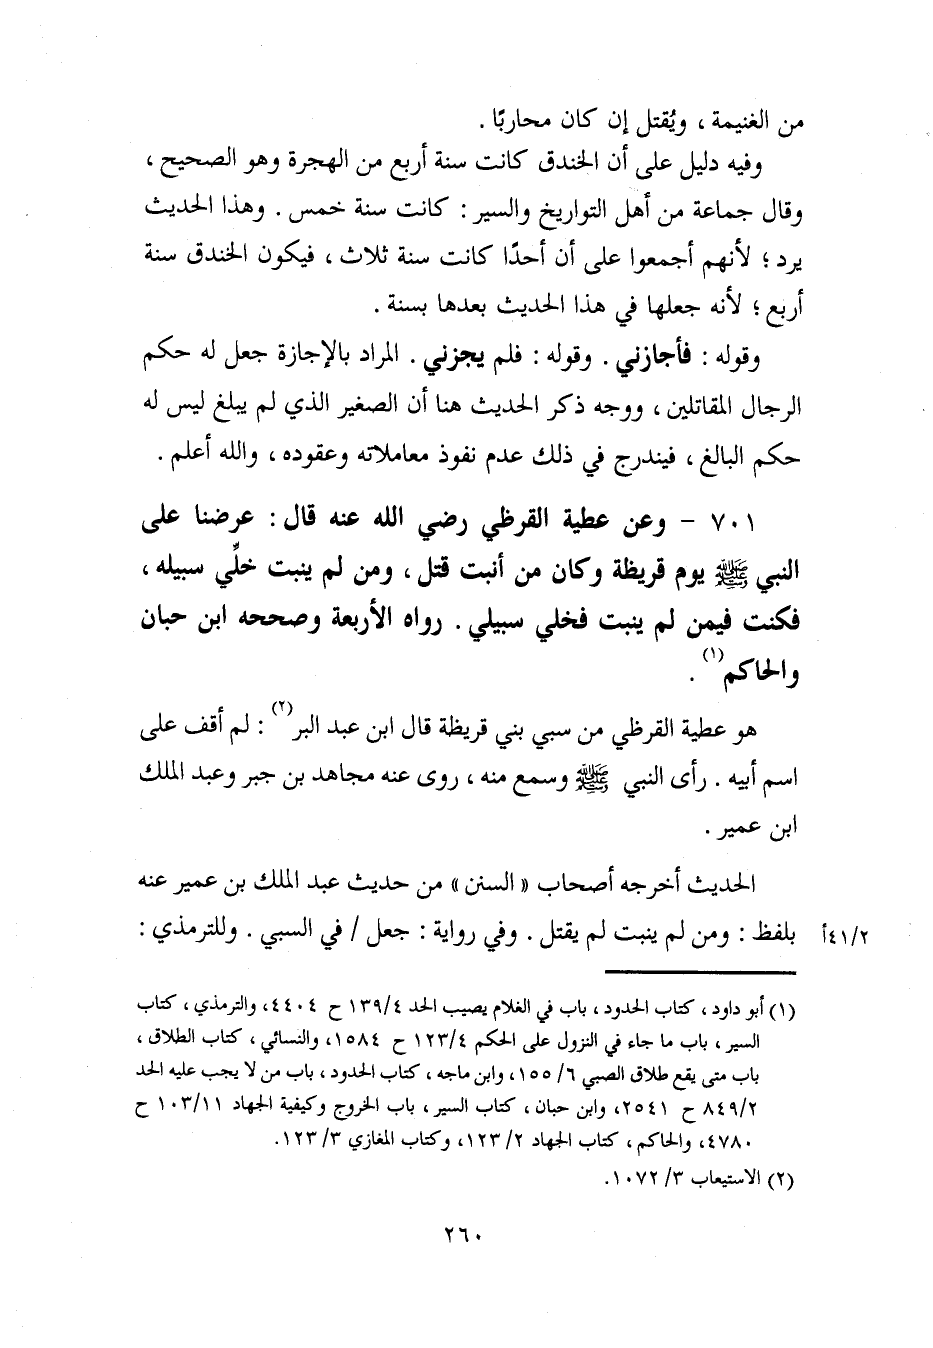 من الغنيمة ، ويُقتل إن كان محاربًا .
وفيه دليل على أن الخندق كانت سنة أربع من الهجرة وهو الصحيح ،
وقال جماعة من أهل التواريخ والسير : كانت سنة خمس . وهذا الحديث
يرد ؛ لأنهم أجمعوا على أن أحدًا كانت سنة ثلاث ، فيكون الخندق سنة
أربع ؛ لأنه جعلها في هذا الحديث بعدها بسنة .
وقوله : فأجازني . وقوله : فلم يجزني . المراد بالإجازة جعل له حكم
الرجال المقاتلين ، ووجه ذكر الحديث هنا أن الصغير الذي لم يبلغ ليس له
حكم البالغ ، فيندرج في ذلك عدم نفوذ معاملاته وعقوده ، والله أعلم .
٧٠١ - وعن عطية القرظي رضي الله عنه قال : عرضنا على
النبي ﷺ يوم قريظة وكان من أنبت قتل ، ومن لم ينبت خلِّي سبيله ،
فكنت فيمن لم ينبت فخلي سبيلي . رواه الأربعة وصححه ابن حبان
والحاكم(١) .
هو عطية القرظي من سبي بني قريظة قال ابن عبد البر(٢) : لم أقف على
اسم أبيه . رأى النبي ﷺ وسمع منه ، روى عنه مجاهد بن جبر وعبد الملك
ابن عمير .
الحديث أخرجه أصحاب « السنن » من حديث عبد الملك بن عمير عنه
بلفظ : ومن لم ينبت لم يقتل . وفي رواية : جعل / في السبي . وللترمذي : ٤١/٢أ
(١) أبو داود ، كتاب الحدود ، باب في الغلام يصيب الحد ١٣٩/٤ ح ٤٤٠٤، والترمذي ، كتاب
السير ، باب ما جاء في النزول على الحكم ١٢٣/٤ ح ١٥٨٤، والنسائي ، كتاب الطلاق ،
باب متى يقع طلاق الصبي ٦/ ١٥٥، وابن ماجه ، كتاب الحدود ، باب من لا يجب عليه الحد
٨٤٩/٢ ح ٢٥٤١، وابن حبان ، كتاب السير ، باب الخروج وكيفية الجهاد ١٠٣/١١ ح
٤٧٨٠، والحاكم ، كتاب الجهاد ٢/ ١٢٣، وكتاب المغازي ٣/ ١٢٣.
(٢) الاستيعاب ٣/ ١٠٧٢.
٢٦٠